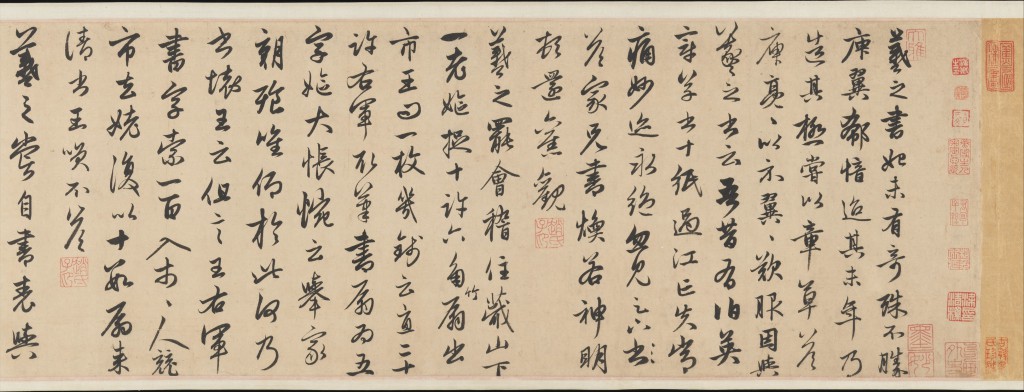 羲之書始未有奇殊不勝
庾翼郗愔迨其末年乃
造其極嘗以章草答
庾亮〻以示翼〻歎服因與
羲之書云吾昔有伯英
章草書十紙過江亡失常
痛妙迹永絕忽見足下書
答家兄書煥若神明
頓還舊觀
羲之罷會稽住蕺山下
一老嫗捉十許六角竹扇出
市王問一枚幾錢云直二十
許右軍取筆書扇為五
字嫗大悵惋云舉家
朝飧唯仰於此何乃
書壞王云但言王右軍
書字索一百入市〻人競
市去姥復以十數扇來
請書王笑不答
羲之嘗自書表與